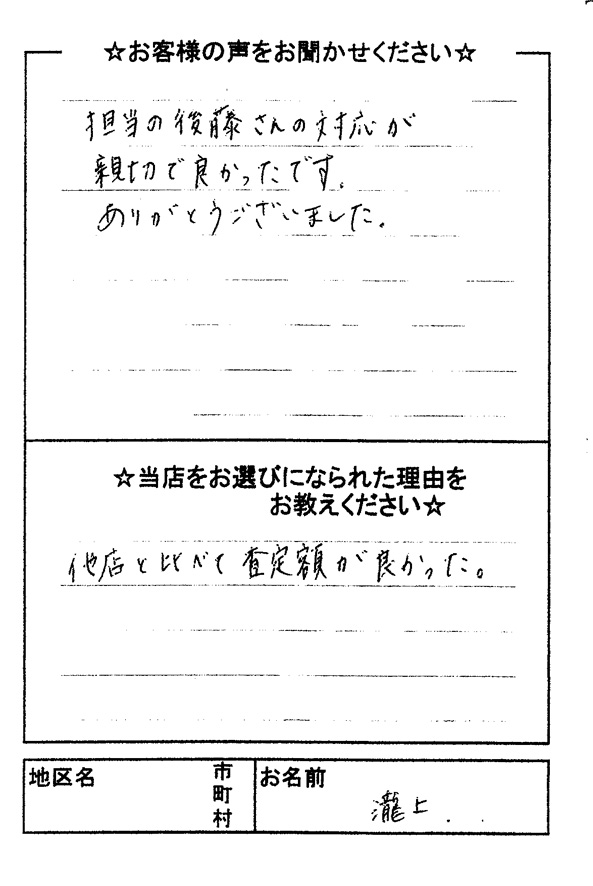 ☆お客様の声をお聞かせください☆
担当の後藤さんの対応が
親切で良かったです。
ありがとうございました。
☆当店をお選びになられた理由を
お教えください☆
他店と比べて査定額が良かった。
地区名
市
町
村
お名前
瀧上